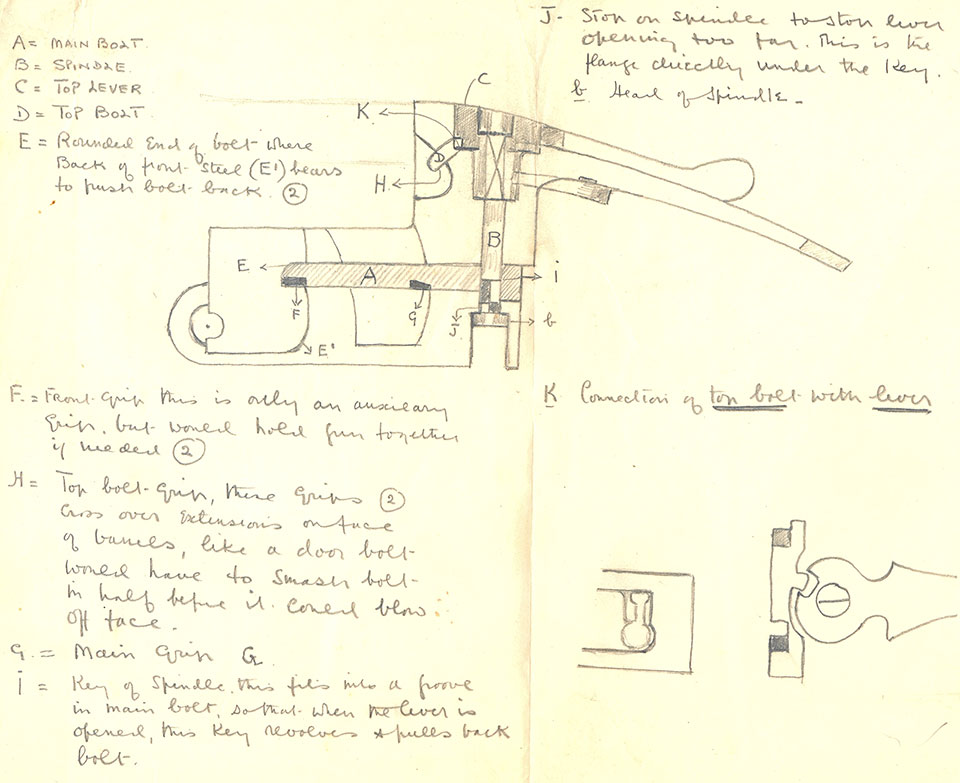 A = MAIN BOLT.
B = SPINDLE.
C = TOP LEVER
D = TOP BOLT
E = Rounded End of bolt where
Back of front steel (E') bears
to push bolt back. (2)
J - Stop on spindle to stop lever
opening too far. This is the
flange directly under the key.
b Head of spindle.
C
K
D
H
B
E
A
i
F
G
J
b
E'
F. = Front Grip this is only an auxileary
Grip, but would hold gun together
if needed (2)
H = Top bolt Grip, these Grips (2)
Cross over Extensions on face
of barrels, like a door bolt
would have to smash bolt
in half before it could blow
off face.
G. = Main Grip G
i = Key of Spindle, this fits into a groove
in main bolt, so that when the lever is
opened, this key revolves & pulls back
bolt.
K Connection of top bolt with lever